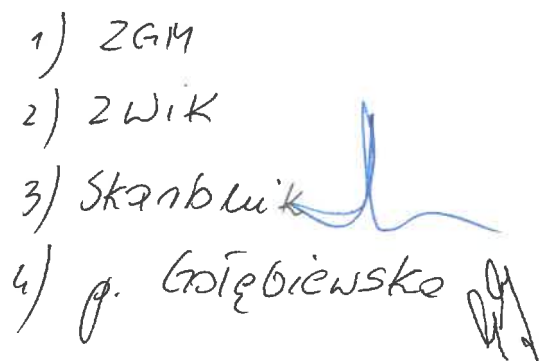 1) ZGM
2) ZWiK
3) Skarbnik
4) p. Gołębiewska